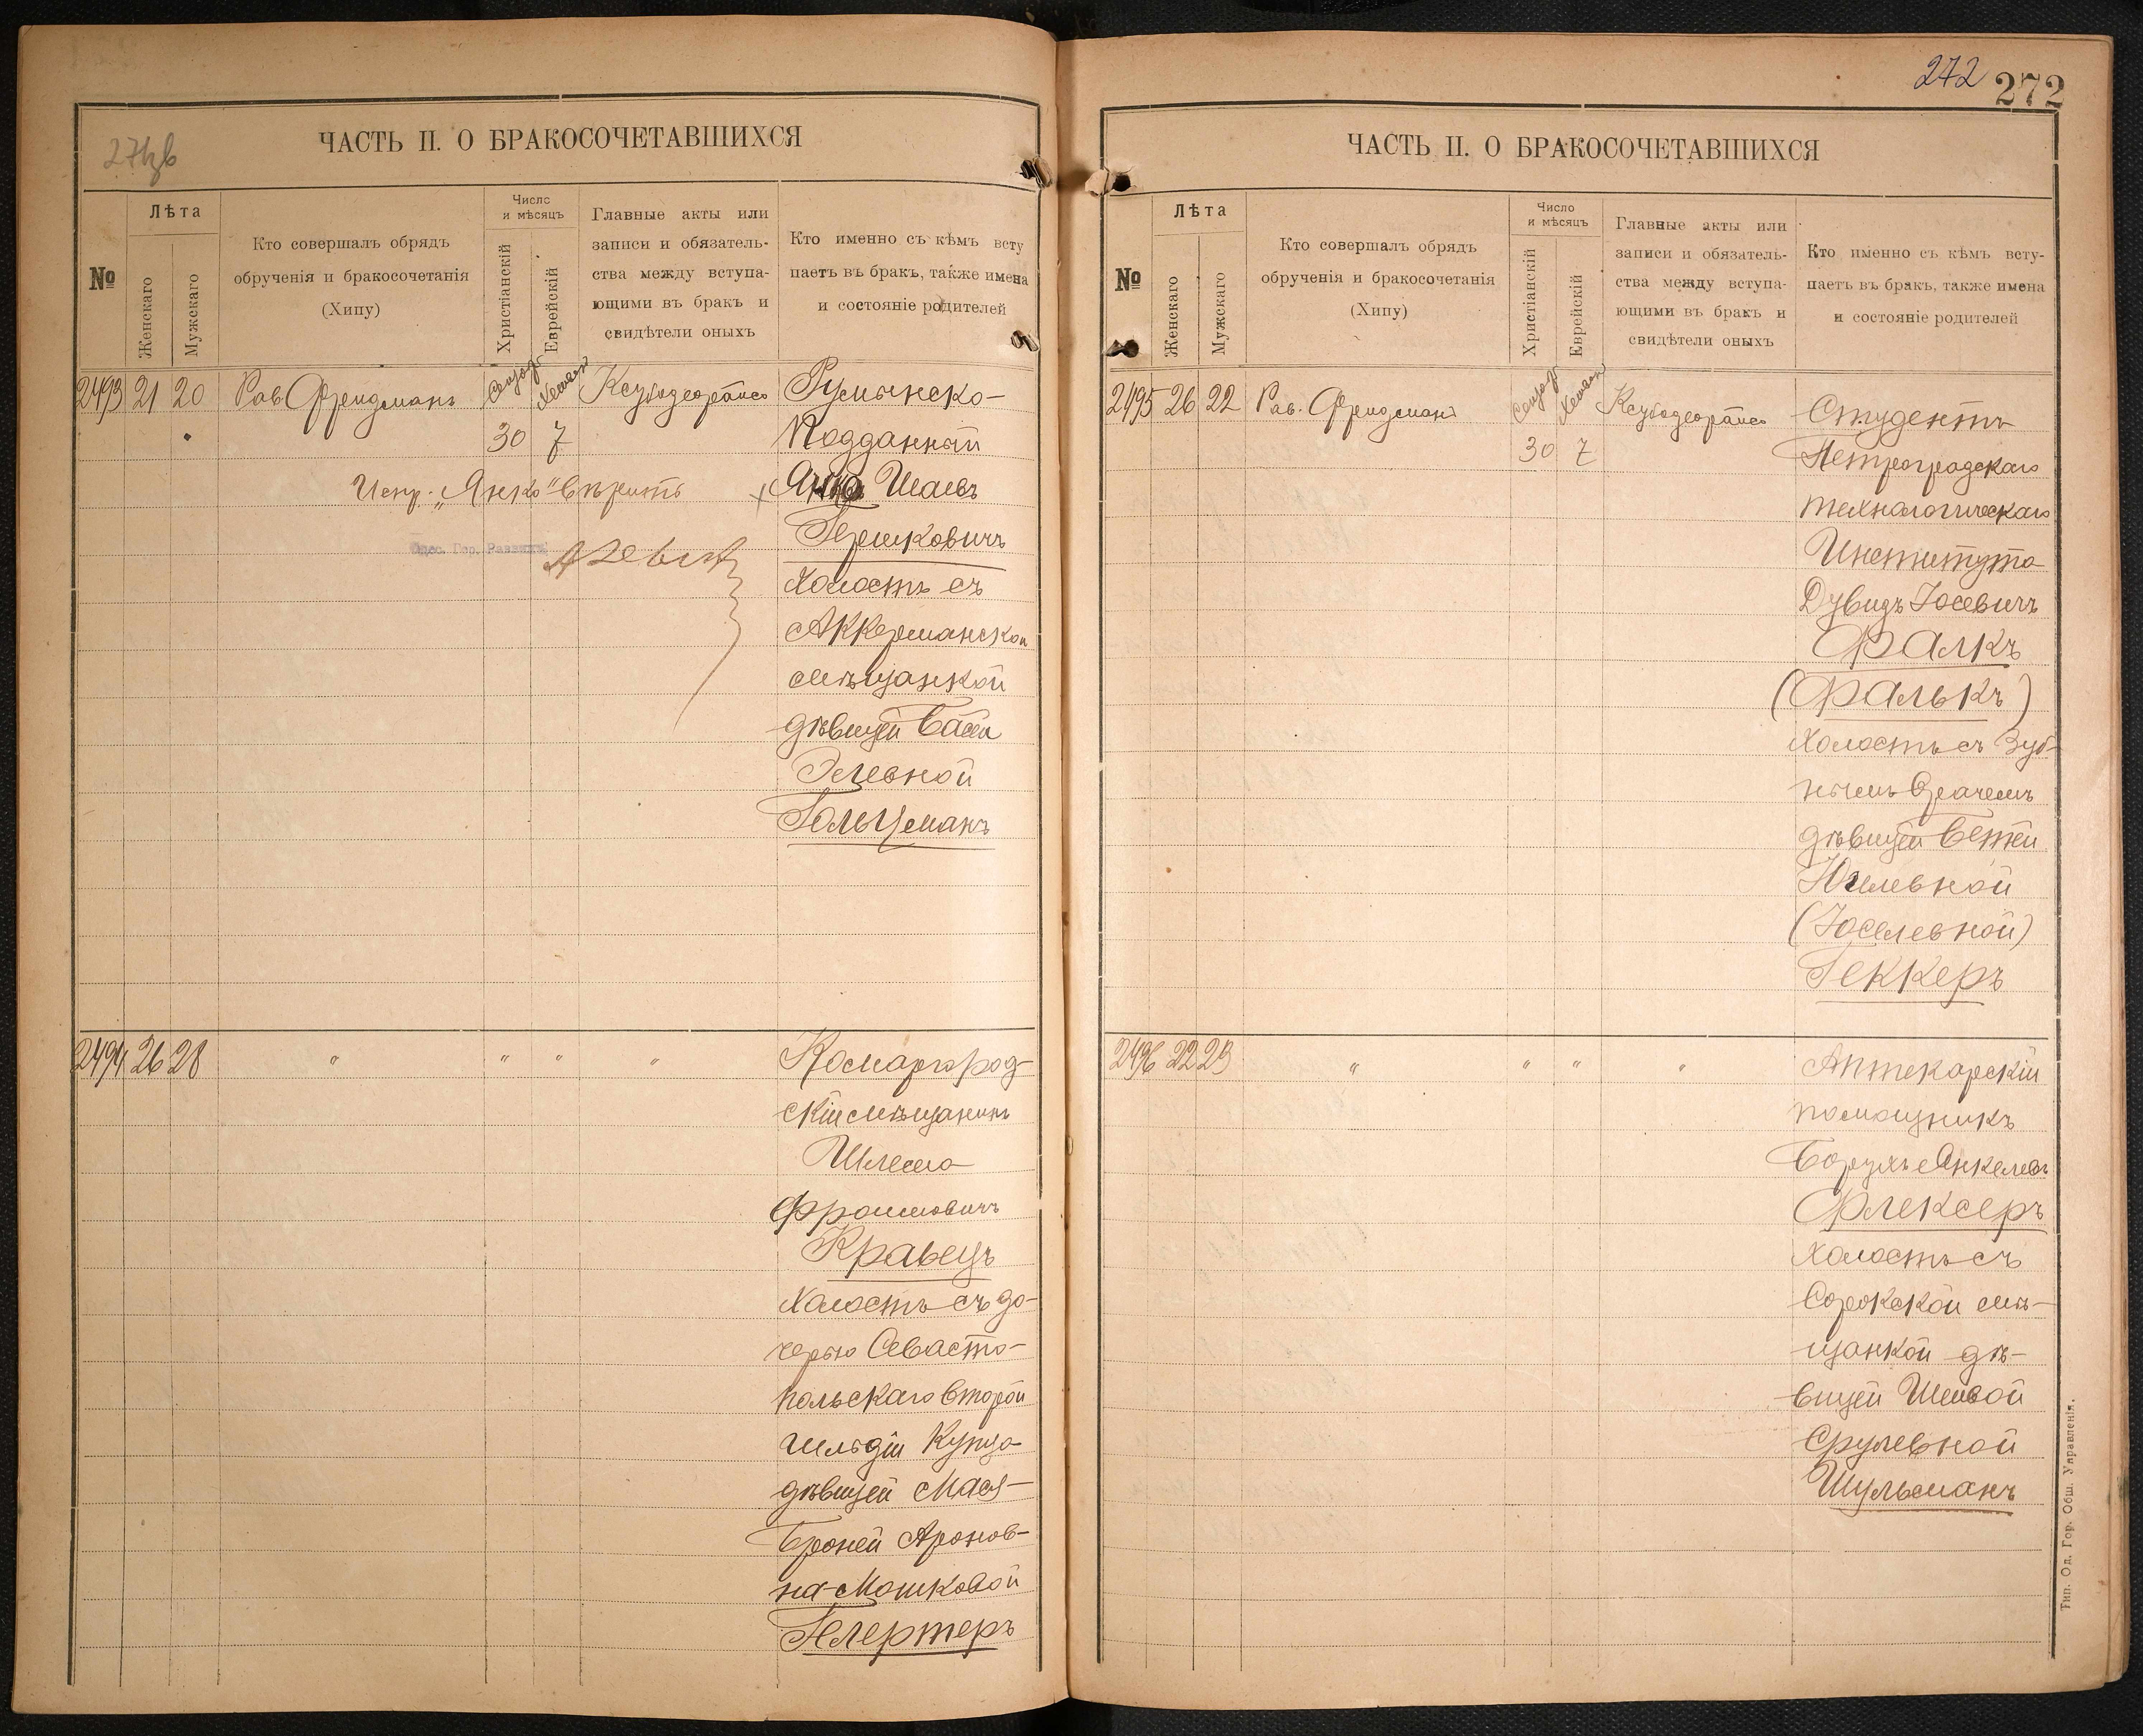 271об
ЧАСТЬ II. О БРАКОСОЧЕТАВШИХСЯ
№
Лѣта
Женскаго
Мужскаго
Кто совершалъ обрядъ
обрученія и бракосочетанія
(Хипу)
Число
и мѣсяцъ
Христіанскій
Еврейскій
Главные акты или
записи и обязатель-
ства между вступа-
ющими въ бракъ и
свидѣтели оныхъ
Кто именно съ кѣмъ всту
паетъ въ бракъ, также имена
и состояніе родителей
2493 21 20 Рав. Фридманъ 30 7
Румынско-
Подданный
Шаевъ
Гершковичъ
холостъ съ
Аккерманской
мѣщанкой
дѣвицей Басей
Элевной
Гольцманъ
Испр. „Янко" вѣрить
Одес. Гор. Раввинъ
2494 26 28 " " " "
Комаргород-
скій мѣщанинъ
Шлема
Фроимовичъ
Кравецъ
холостъ съ до-
черью Севасто-
польскаго второй
гильдіи купца
дѣвицей Мася-
Броней Аронов-
на-Мошковой
Гелертеръ
272 272
ЧАСТЬ II. О БРАКОСОЧЕТАВШИХСЯ
№
Лѣта
Женскаго
Мужскаго
Кто совершалъ обрядъ
обрученія и бракосочетанія
(Хипу)
Число
и мѣсяцъ
Христіанскій
Еврейскій
Главные акты или
записи и обязатель-
ства между вступа-
ющими въ бракъ и
свидѣтели оныхъ
Кто именно съ кѣмъ всту-
паетъ въ бракъ, также имена
и состояніе родителей
2495 26 22 Рав. Фридманъ 30 7
Студентъ
Петроградскаго
технологическаго
Института
Дувидъ Іосевичъ
Фалкъ
(Фалькъ)
холостъ съ Зуб-
нымъ врачемъ
дѣвицей Бетей
Юзилевной
(Іоселевной)
Геккеръ
2496 22 29 " " " "
Аптекарскій
помощникъ
Борухъ Янкелевъ
Флексеръ
холостъ съ
Сорокской мѣ-
щанкой дѣ-
вицей Шейвой
Срулевной
Шульманъ
Тип. Од. Гор. Общ. Управленія.